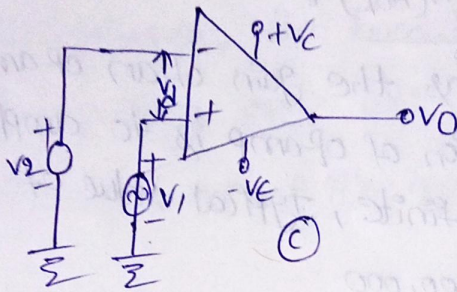 +Vc
-
Vd
+
VO
+
V2
-
+
V1
-
-VE
C